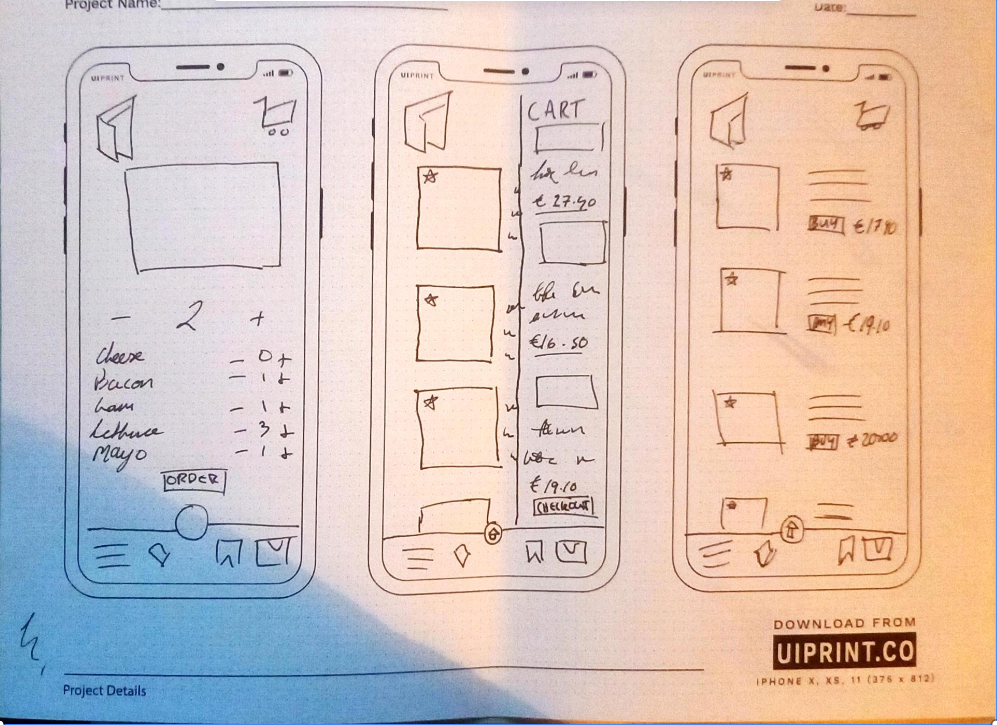 Project Name:
Date:
UIPRINT
- 2 +
Cheese - 0 +
Bacon - 1 +
ham - 1 +
Lettuce - 3 +
Mayo - 1 +
ORDER
UIPRINT
CART
€ 27.90
€16.50
€19.10
CHECKOUT
UIPRINT
BUY €17.90
BUY €19.10
BUY €20.00
DOWNLOAD FROM
UIPRINT.CO
IPHONE X, XS, 11 (375 x 812)
Project Details